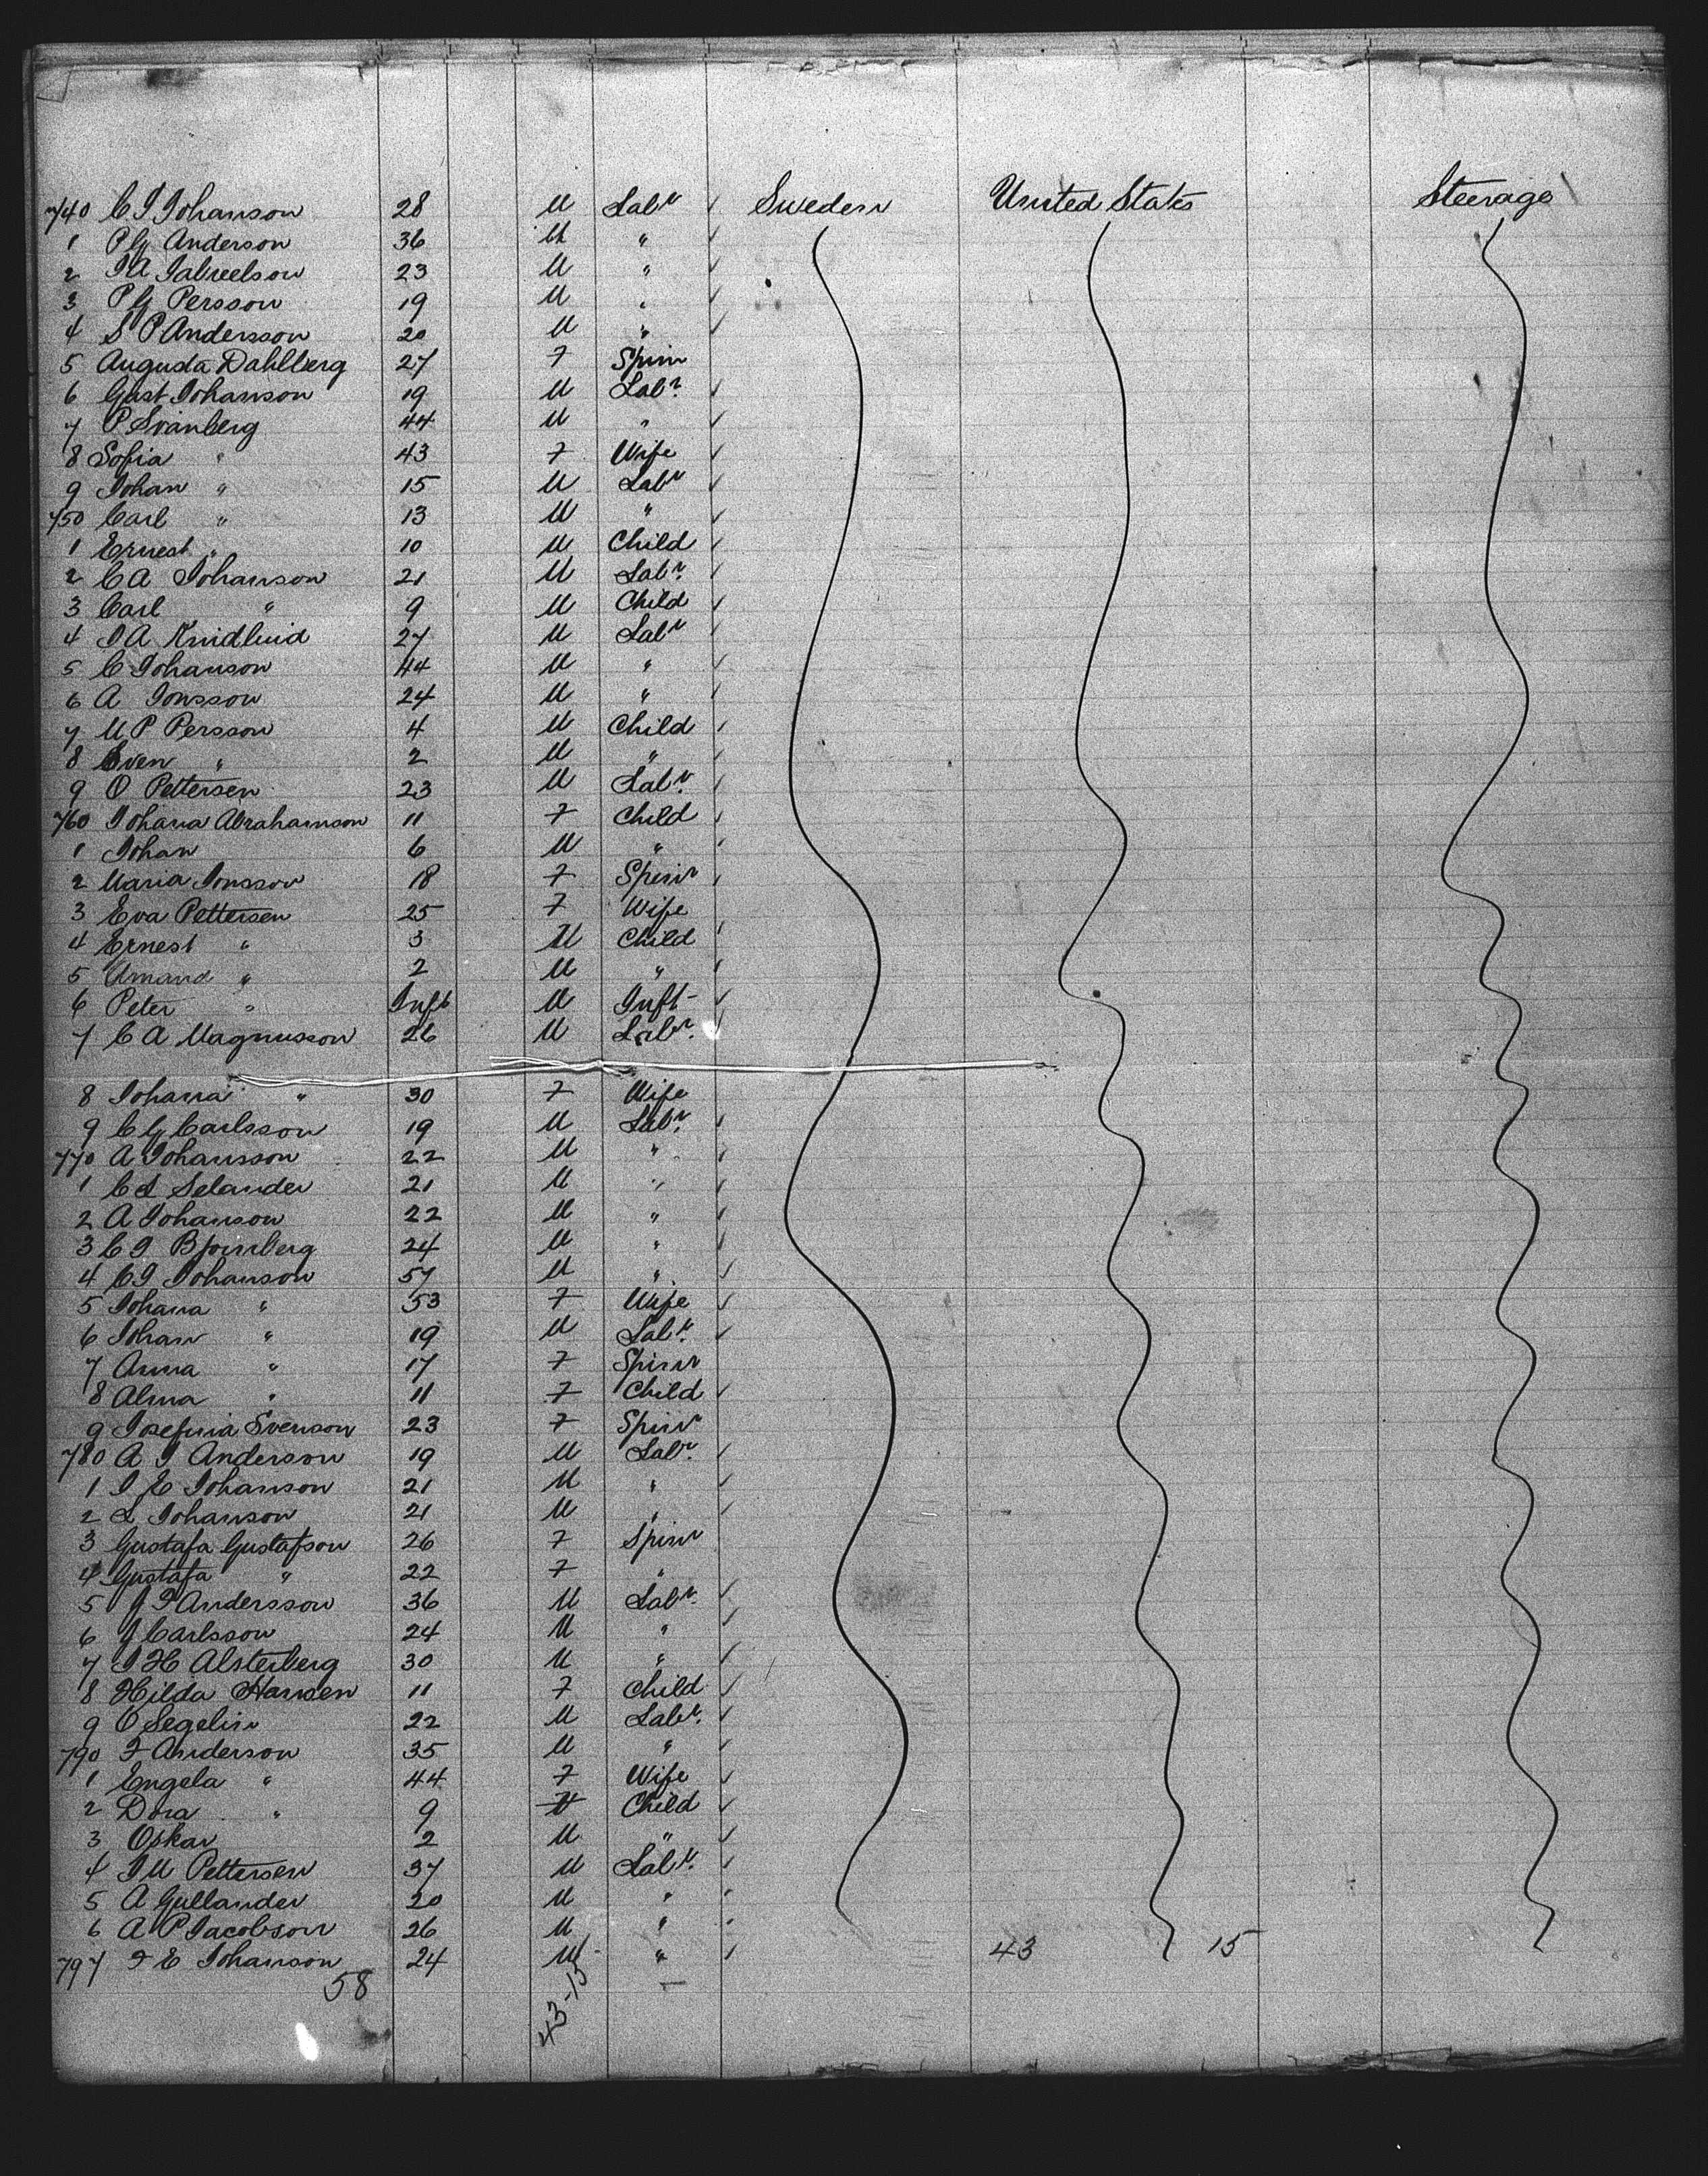 740 C I Johanson 28 M Labr ✓ Sweden United States Steerage
1 P G Anderson 36 M " ✓
2 I A Gabrielson 23 M " ✓
3 P G Persson 19 M " ✓
4 S P Andersson 20 M " ✓
5 Augusta Dahlberg 27 F Spinr
6 Gust Johanson 19 M Labr ✓
7 P Svanberg 44 M " ✓
8 Sofia " 43 F Wife ✓
9 Johan " 15 M Labr ✓
750 Carl " 13 M " ✓
1 Ernest " 10 M Child ✓
2 C A Johanson 21 M Labr ✓
3 Carl " 9 M Child ✓
4 I A 27 M Labr ✓
5 C Johanson 44 M " ✓
6 A Jonsson 24 M " ✓
7 M P Persson 4 M Child ✓
8 Sven " 2 M " ✓
9 O Pettersen 23 M Labr ✓
760 Johana Abrahamson 11 F Child ✓
1 Johan 6 M " ✓
2 Maria Jonsson 18 F Spinr ✓
3 Eva Pettersen 25 F Wife
4 Ernest " 3 M Child ✓
5 Amand " 2 M " ✓
6 Peter " Inft M Inft ✓
7 C A Magnusson 26 M Labr
8 Johana " 30 F Wife
9 C G Carlsson 19 M Labr ✓
770 A Johansson 22 M " ✓
1 C L Selander 21 M " ✓
2 A Johanson 22 M " ✓
3 C I Bjornberg 24 M " ✓
4 C I Johanson 57 M " ✓
5 Johana " 53 F Wife ✓
6 Johan " 19 M Labr ✓
7 Anna " 17 F Spinr
8 Alma " 11 F Child ✓
9 Josefina Svenson 23 F Spinr
780 A I Anderson 19 M Labr ✓
1 I E Johanson 21 M " ✓
2 L Johanson 21 M " ✓
3 Gustafa Gustafson 26 F Spinr
4 Gustafa " 22 F "
5 G F Andersson 36 M Labr ✓
6 G Carlsson 24 M " ✓
7 I H Alsterberg 30 M " ✓
8 Hilda Hansen 11 F Child ✓
9 O Segelin 22 M Labr ✓
790 F Anderson 35 M " ✓
1 Engela " 44 F Wife ✓
2 Dora " 9 F Child ✓
3 Oskar 2 M " ✓
4 I M Pettersen 37 M Labr ✓
5 A Gullander 20 M " ✓
6 A P Jacobson 26 M " ✓
797 F E Johanson 24 M " ✓ 43 15
58 43-15